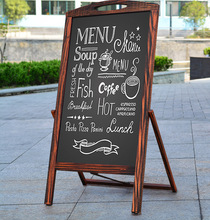 MENU
Menu
Soup
of the day
MENU
Fresh
Fish
Coffee
Breakfast
HOT
ESPRESSO
CAPPUCCINO
AMERICANO
Pasta Pizza Panini
Lunch